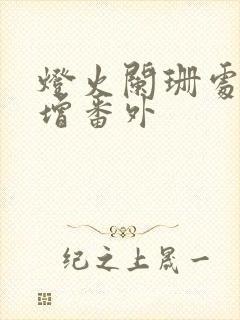 燈火闌珊處
增番外
纪之上晟一